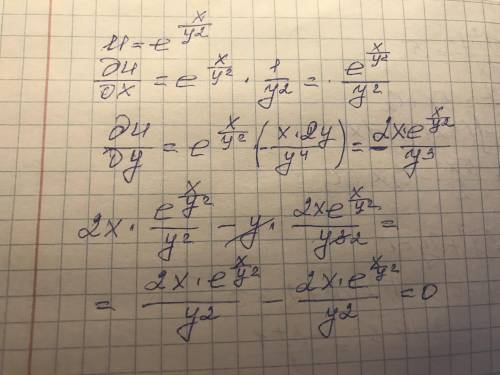 u = e^{x/y2}
∂u/∂x = e^{x/y²} · 1/y2 = · e^{x/y²}/y²
∂u/∂y = e^{x/y²} · (- x·2y/y⁴) = - 2x·e^{x/y2}/y³
2x · e^{x/y²}/y² - y · 2xe^{x/y²}/y³ 2 =
= 2x·e^{x/y2}/y2 - 2x·e^{x/y²}/y2 = 0